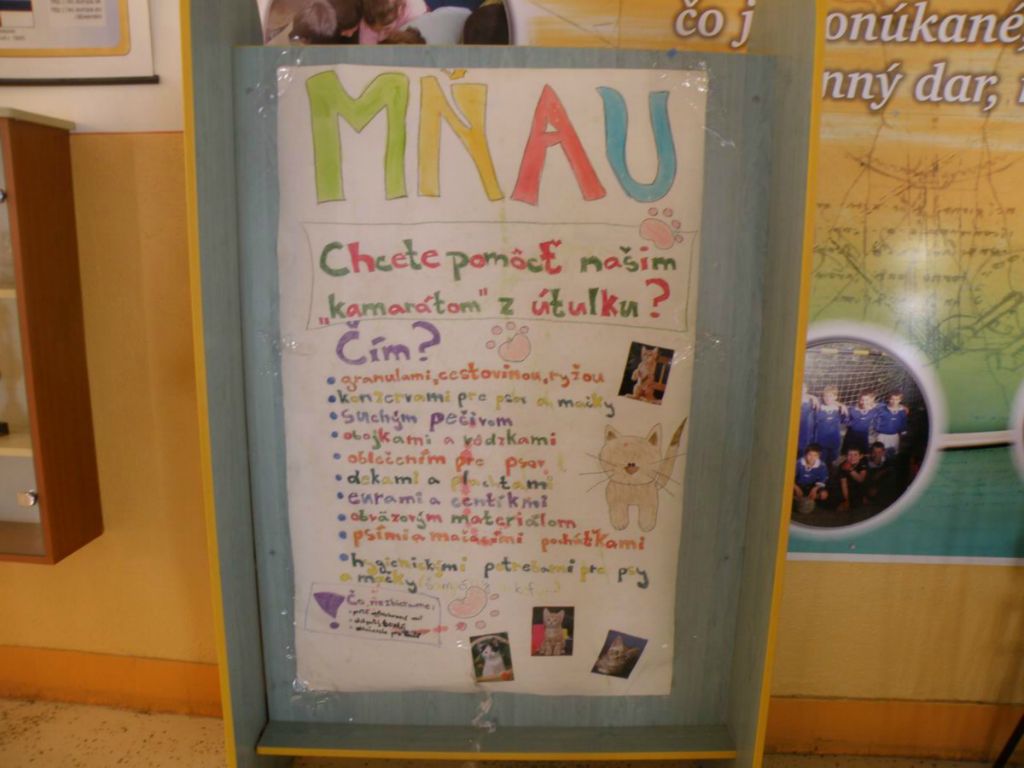 čo j
onúkané,
nný dar,
MŇAU
Chcete pomôcť našim
"kamarátom" z útulku?
Čím?
• granulami, cestovinou, ryžou
• konzervami pre psov a mačky
• suchým pečivom
• obojkami a vôdzkami
• oblečením pre psov
• dekami a plachtami
• eurami a centíkmi
• obväzovým materiálom
• psími a mačacími pochúťkami
• hygienickými potrebami pre psy
a mačky
Čo nezbierame: